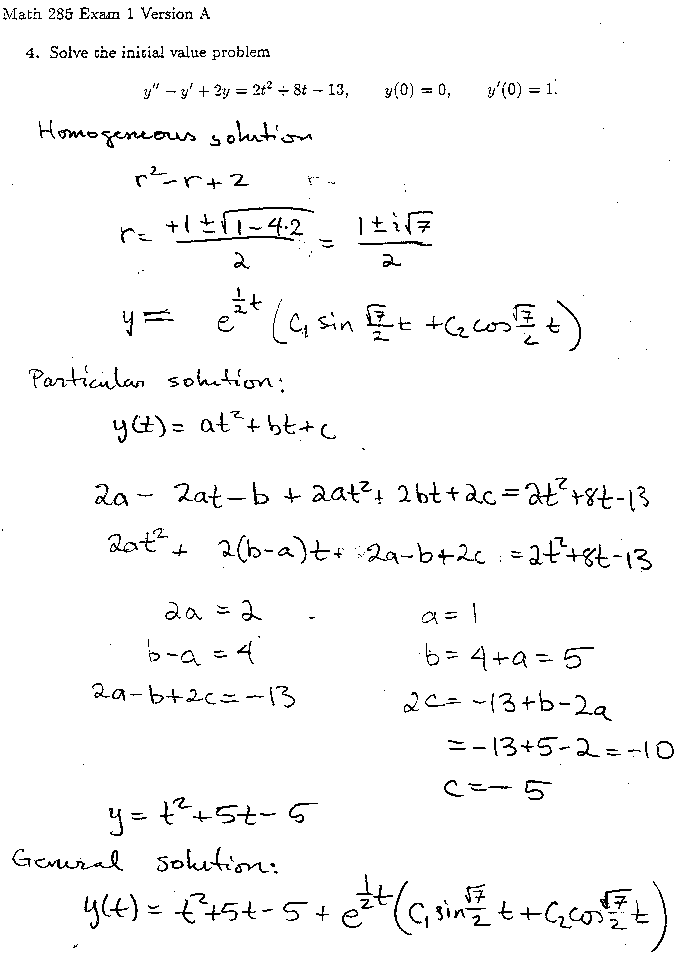 Math 285 Exam 1 Version A
4. Solve the initial value problem
y'' − y' + 2y = 2t² + 8t − 13,   y(0) = 0,   y'(0) = 1.
Homogeneous solution
r² − r + 2
r = (+1 ± √(1 − 4·2))/2 = (1 ± i√7)/2
y = e^(½t) (C₁ sin √7/2 t + C₂ cos √7/2 t)
Particular solution:
y(t) = at² + bt + c
2a − 2at − b + 2at² + 2bt + 2c = 2t² + 8t − 13
2at² + 2(b−a)t + 2a − b + 2c = 2t² + 8t − 13
2a = 2   a = 1
b − a = 4   b = 4 + a = 5
2a − b + 2c = −13   2c = −13 + b − 2a
= −13 + 5 − 2 = −10
c = −5
y = t² + 5t − 5
General solution:
y(t) = t² + 5t − 5 + e^(½t) (C₁ sin √7/2 t + C₂ cos √7/2 t)